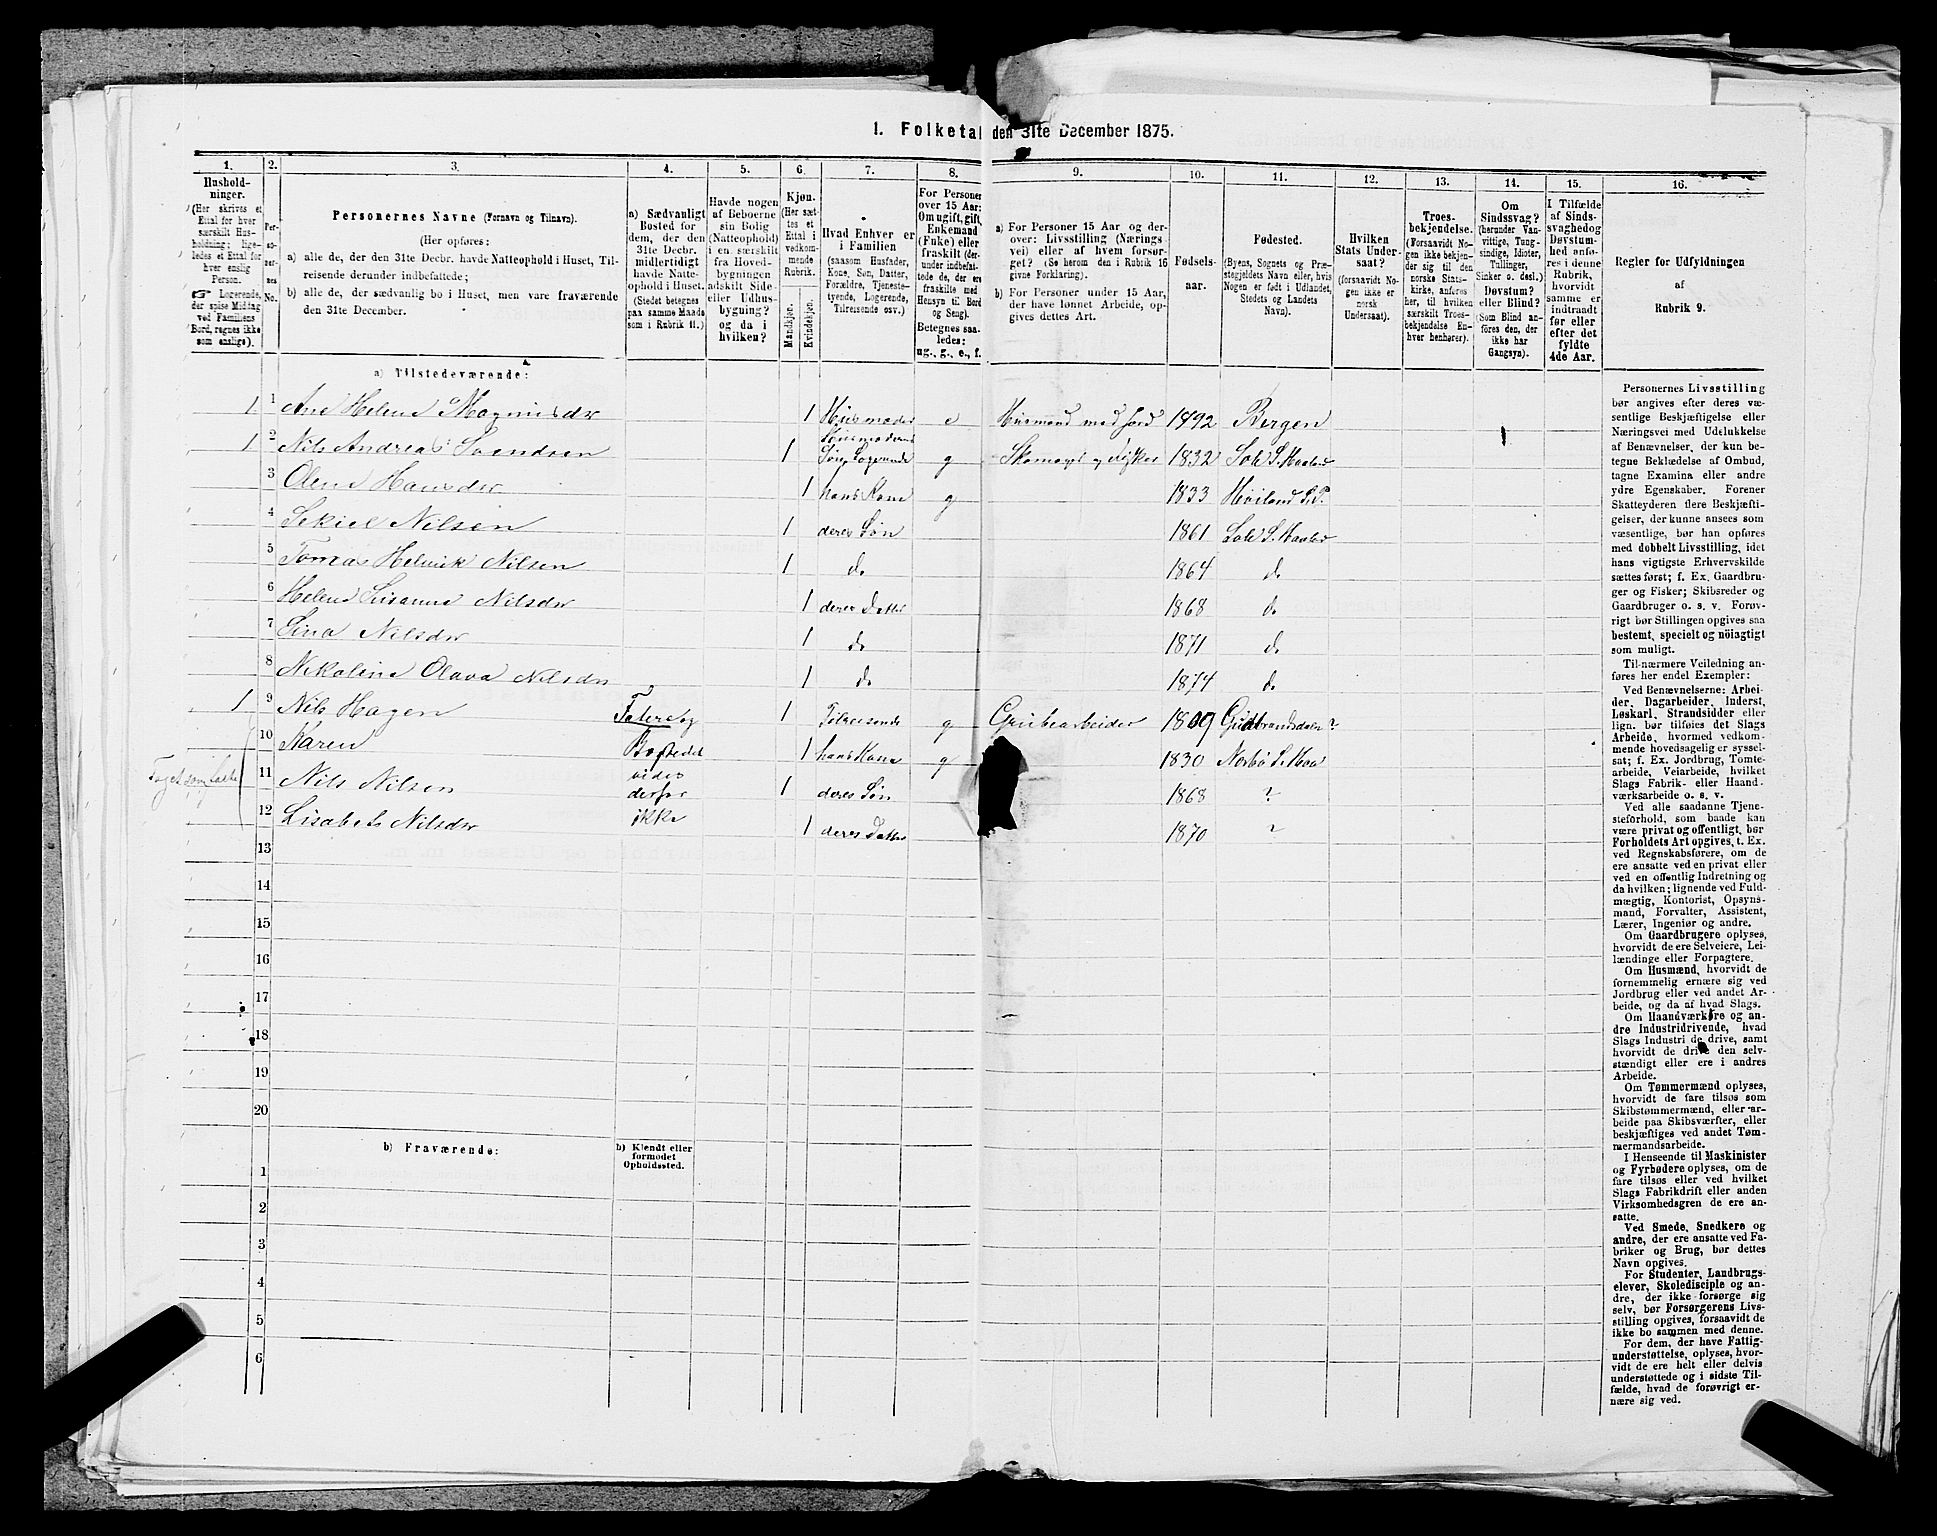 1. Folketal den 31te December 1875.
1. 2. 3. 4. 5. 6. 7. 8. 9. 10. 11. 12. 13. 14. 15. 16.
Hushold-
ninger.
(Her skrives et
Ettal for hver
særskilt Hus-
holdning; lige-
ledes et Ettal for
hver enslig
Person.
☞ Logerende,
der spise Middag
ved Familiens
Bord, regnes ikke
som enslige).
Per-
so-
ner-
nes
No.
Personernes Navne (Fornavn og Tilnavn).
(Her opføres:
a) alle de, der den 31te Decbr. havde Natteophold i Huset, Til-
reisende derunder indbefattede;
b) alle de, der sædvanlig bo i Huset, men vare fraværende
den 31te December.
a) Sædvanligt
Bosted for
dem, der den
31te Decbr.
midlertidigt
havde Natte-
ophold i Huset.
(Stedet betegnes
paa samme Maade
som i Rubrik 11.)
Havde nogen
af Beboerne
sin Bolig
(Natteophold)
i en særskilt
fra Hoved-
bygningen
adskilt Side-
eller Udhus-
bygning?
og da i
hvilken?
Kjøn.
(Her sæt-
tes et
Ettal i
vedkom-
mende
Rubrik.
Mandkjøn.
Kvindekjøn.
Hvad Enhver er
i Familien
(saasom Husfader,
Kone, Søn, Datter,
Forældre, Tjeneste-
tyende, Logerende,
Tilreisende osv.)
For Personer
over 15 Aar:
Om ugift, gift,
Enkemand
(Enke) eller
fraskilt (der-
under indbefat-
tede de, der ere
fraskilte med
Hensyn til Bord
og Seng).
Betegnes saa-
ledes:
ug., g., e., f.
a) For Personer 15 Aar og der-
over: Livsstilling (Nærings-
vei) eller af hvem forsør-
get? (Se herom den i Rubrik 16
givne Forklaring).
b) For Personer under 15 Aar,
der have lønnet Arbeide, op-
gives dettes Art.
Fødsels-
aar.
Fødested.
(Byens, Sognets og Præ-
stegjeldets Navn eller, hvis
Nogen er født i Udlandet,
Stedets og Landets
Navn).
Hvilken
Stats Under-
saat?
(forsaavidt No-
gen ikke er
norsk
Undersaat).
Troes-
bekjendelse.
(Forsaavidt No-
gen ikke bekjen-
der sig til den
norske Stats-
kirke, anføres
her, til hvilken
særskilt Troes-
bekjendelse En-
hver henhører).
Om
Sindssvag?
(herunder Van-
vittige, Tung-
sindige, Idioter,
Tullinger,
Sinker o. desl.)
Døvstum?
eller Blind?
(Som Blind an-
føres den, der
ikke har
Gangsyn).
I Tilfælde
af Sinds-
svaghed og
Døvstum-
hed anfø-
res i denne
Rubrik,
hvorvidt
samme er
indtraadt
før eller
efter det
fyldte
4de Aar.
Regler for Udfyldningen
af
Rubrik 9.
a) Tilstedeværende:
1 1 Ane Helene Magnusdr 1 Husmoder e Husmand med Jord 1892 Bergen
1 2 Nils Andreas Svendsen 1 Søn, g Skomager og Fisker 1832 Sole S.
3 Olene Hansdr 1 hans Kone g 1833 Høiland
4 Sekiel Nilsen 1 deres Søn 1861 Sole S.
5 Tomas Helmik Nilsen 1 do 1864 do
6 Helene Susanne Nilsdr 1 deres Datter 1868 do
7 Sina Nilsdr 1 do 1871 do
8 Nikoline Olava Nilsdr 1 do 1874 do
1 9 Nils Hagen Fatere og 1 Tilreisende g Grubearbeider 1809 Gudbrandsdalen?
10 Karen Bostedet 1 hans Kone g 1830 Nærbø
Toget som
11 Nils Nilsen vides derfor 1 deres Søn 1868 ?
12 Lisabeth Nilsdr ikke 1 deres Datter 1870 ?
13
14
15
16
17
18
19
20
b) Fraværende:
b) Kjendt eller
formodet
Opholdssted.
1
2
3
4
5
6
Personernes Livsstilling
bør angives efter deres væ-
sentlige Beskjæftigelse eller
Næringsvei med Udelukkelse
af Benævnelser, der kun be-
tegne Beklædelse af Ombud,
tagne Examina eller andre
ydre Egenskaber. Forener
Skatteyderen flere Beskjæfti-
gelser, der kunne ansees som
væsentlige, bør han opføres
med dobbelt Livsstilling, idet
hans vigtigste Erhvervskilde
sættes først; f. Ex. Gaardbru-
ger og Fisker; Skibsreder og
Gaardbruger o. s. v. Forøv-
rigt bør Stillingen opgives saa
bestemt, specielt og nöiagtigt
som muligt.
Til nærmere Veiledning an-
føres her endel Exempler:
Ved Benævnelserne: Arbei-
der, Dagarbeider, Inderst,
Løskarl, Strandsidder eller
lign. bør tilføies det Slags
Arbeide, hvormed vedkom-
mende hovedsagelig er syssel-
sat; f. Ex. Jordbrug, Tomte-
arbeide, Veiarbeide, hvilket
Slags Fabrik- eller Haand-
værksarbeide o. s. v.
Ved alle saadanne Tjene-
steforhold, som baade kan
være privat og offentligt, bør
Forholdets Art opgives, t. Ex.
ved Regnskabsførere, om de
ere ansatte ved en privat eller
ved en offentlig Indretning og
da hvilken; lignende ved Fuld-
mægtig, Kontorist, Opsyns-
mand, Forvalter, Assistent,
Lærer, Ingeniør og andre.
Om Gaardbrugere oplyses,
hvorvidt de ere Selveiere, Lei-
lændinge eller Forpagtere.
Om Husmænd, hvorvidt de
fornemmelig ernære sig ved
Jordbrug eller ved andet Ar-
beide, og da af hvad Slags.
Om Haandværkere og an-
dre Industridrivende, hvad
Slags Industri de drive, samt
hvorvidt de drive den selv-
stændigt eller ere i andres
Arbeide.
Om Tømmermænd oplyses,
hvorvidt de fare tilsøs som
Skibstømmermænd, eller ar-
beide paa Skibsværfter, eller
beskjæftiges ved andet Tøm-
mermandsarbeide.
I Henseende til Maskinister
og Fyrbødere oplyses, om de
fare tilsøs eller ved hvilket
Slags Fabrikdrift eller anden
Virksomhedsgren de ere an-
satte.
Ved Smede, Snedkere og
andre, der ere ansatte ved Fa-
briker og Brug, bør dettes
Navn opgives.
For Studenter, Landbrugs-
elever, Skoledisciple og an-
dre, der ikke forsørge sig
selv, bør Forsørgerens Livs-
stilling opgives, forsaavidt de
ikke bo sammen med denne.
For dem, der have Fattig-
understøttelse, oplyses, hvor-
vidt de ere helt eller delvis
understøttede og i sidste Til-
fælde, hvad de forøvrigt er-
nære sig ved.